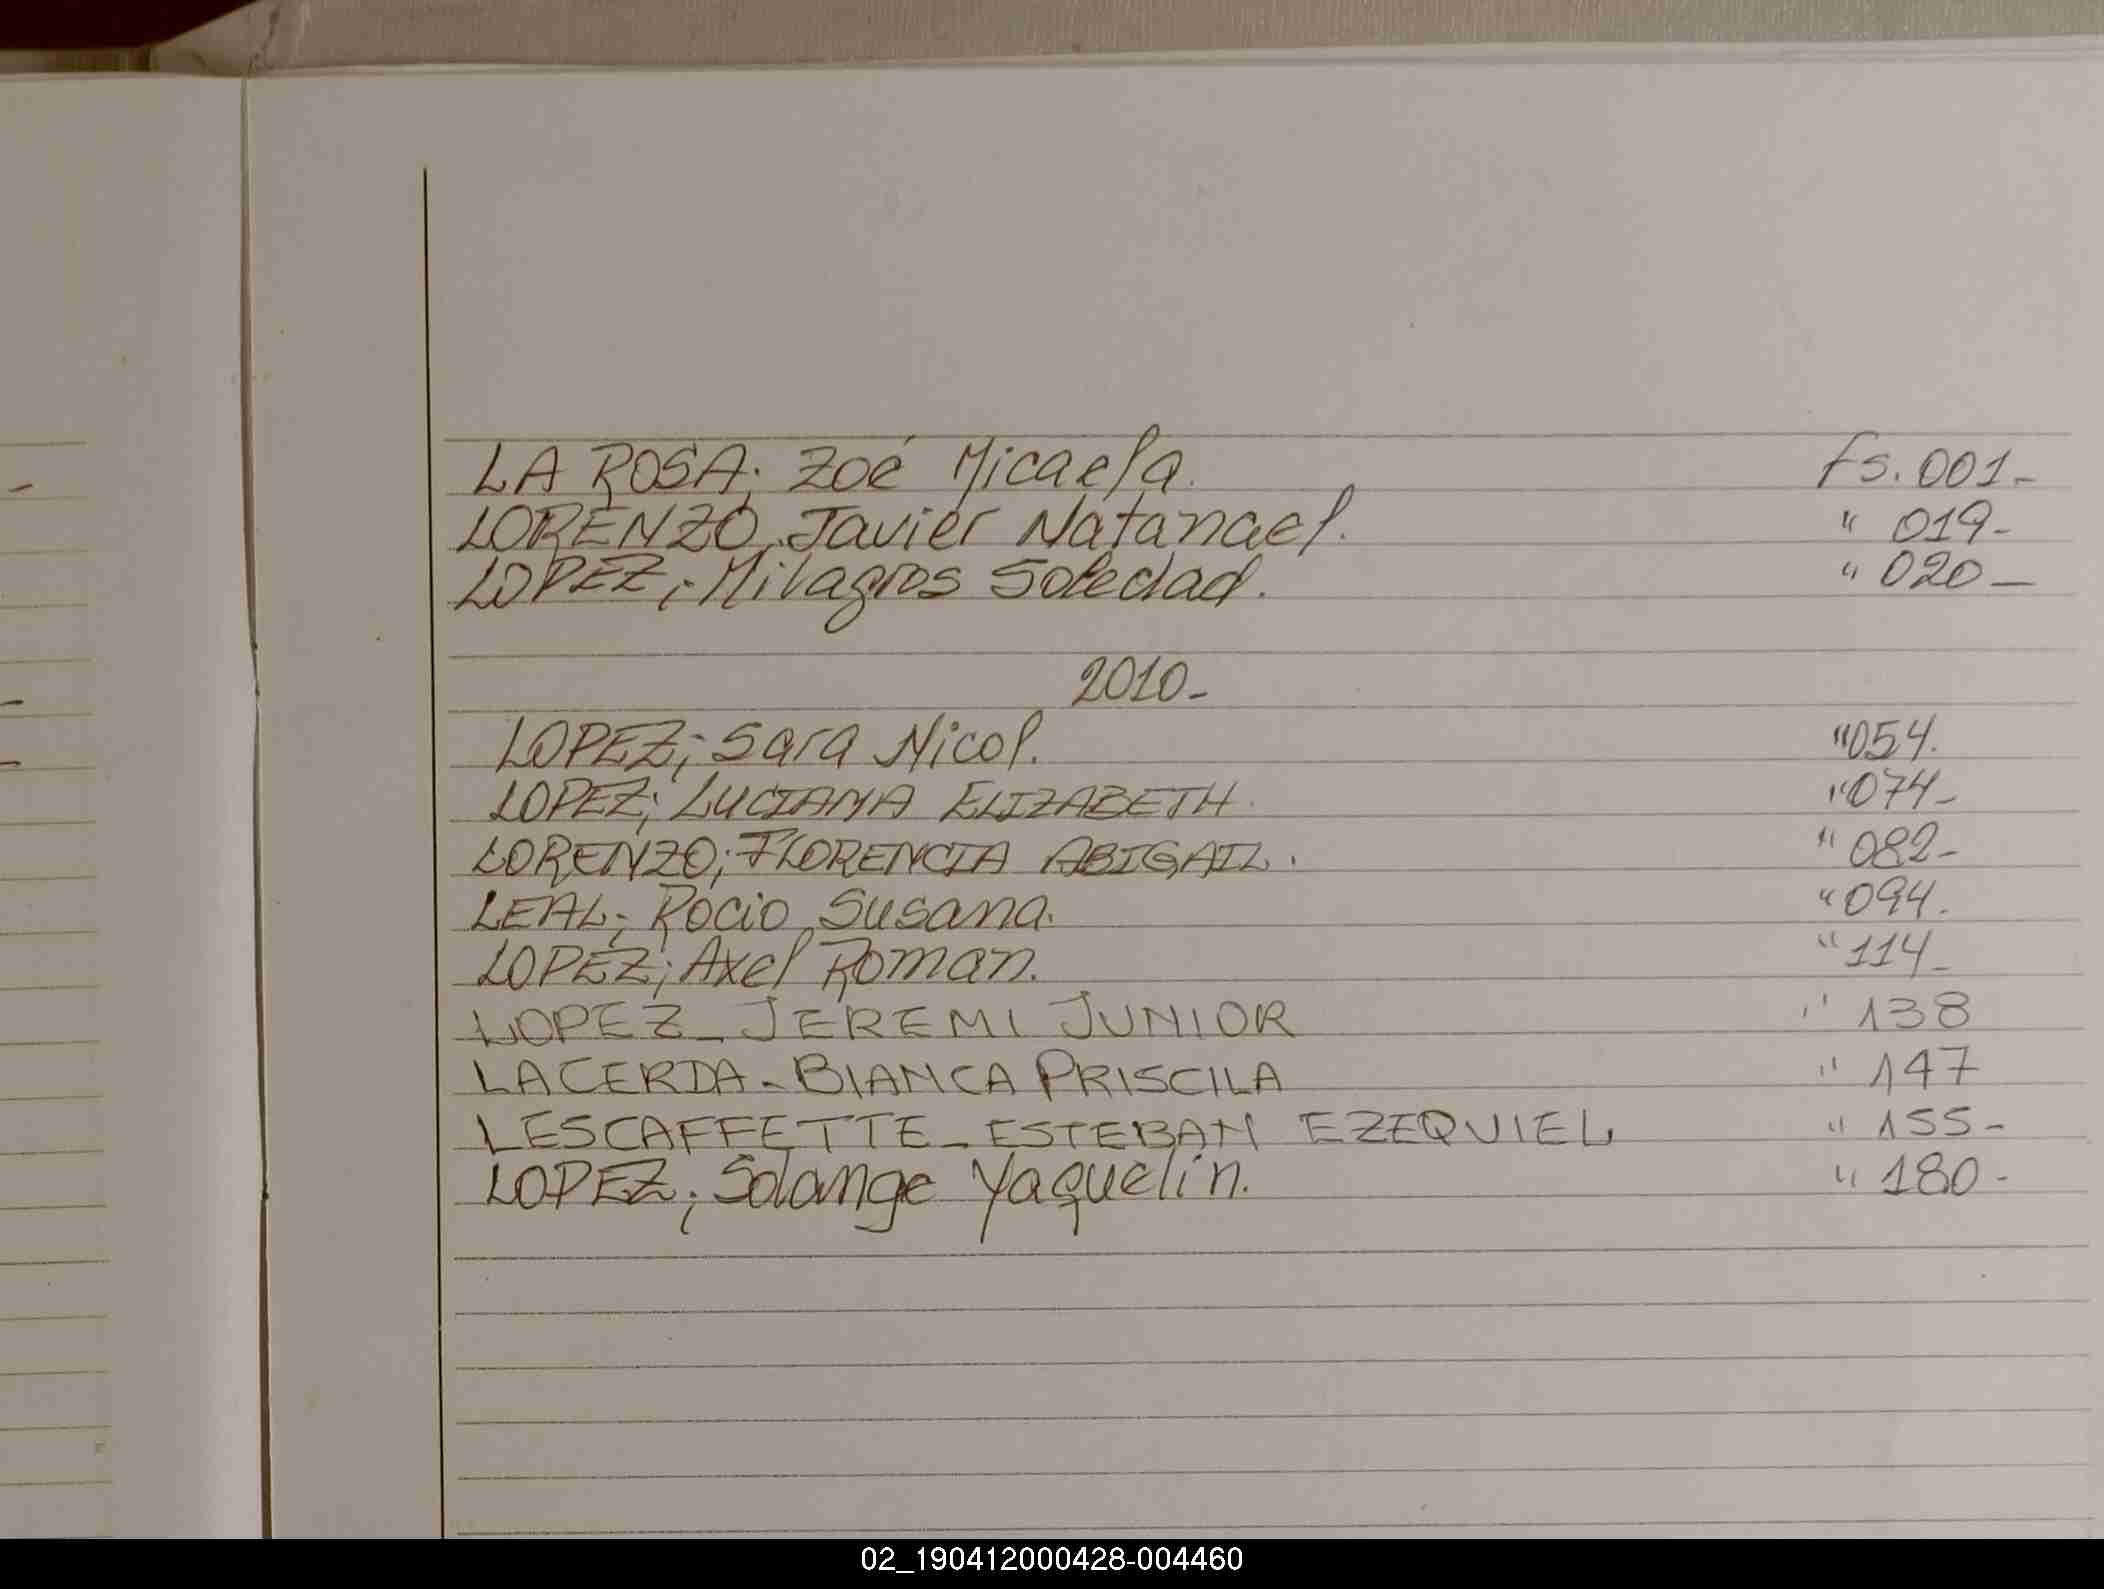 LA ROSA; Zoé Micaela. Fs. 001-
LORENZO; Javier Natanael. " 019-
LOPEZ; Milagros Soledad. " 020-
2010-
LOPEZ; Sara Nicol. " 054.
LOPEZ; LUCIANA ELIZABETH. " 074-
LORENZO; FLORENCIA ABIGAIL. " 082-
LEAL; Rocio Susana. " 094.
LOPEZ; Axel Roman. " 114-
LOPEZ - JEREMI JUNIOR " 138
LACERDA - BIANCA PRISCILA " 147
LESCAFFETTE - ESTEBAN EZEQUIEL " 155-
LOPEZ; Solange Yaquelin. " 180-
02_190412000428-004460